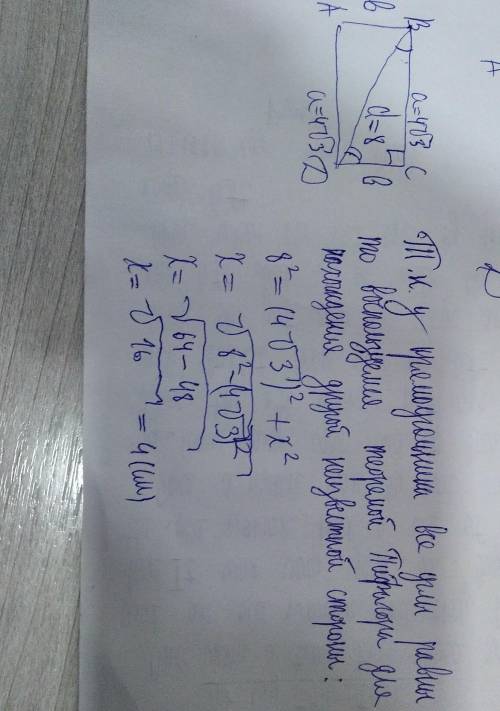 A
B
a=4√3
C
в
d=8
в
A
a=4√3
D
Т.к у прямоугольника все углы равны
то воспользуемся теоремой Пифагора для
нахождения другой неизвестной стороны:
8² = (4√3)² + x²
x = √8²-(4√3)²
x = √64-48
x = √16 = 4(см)